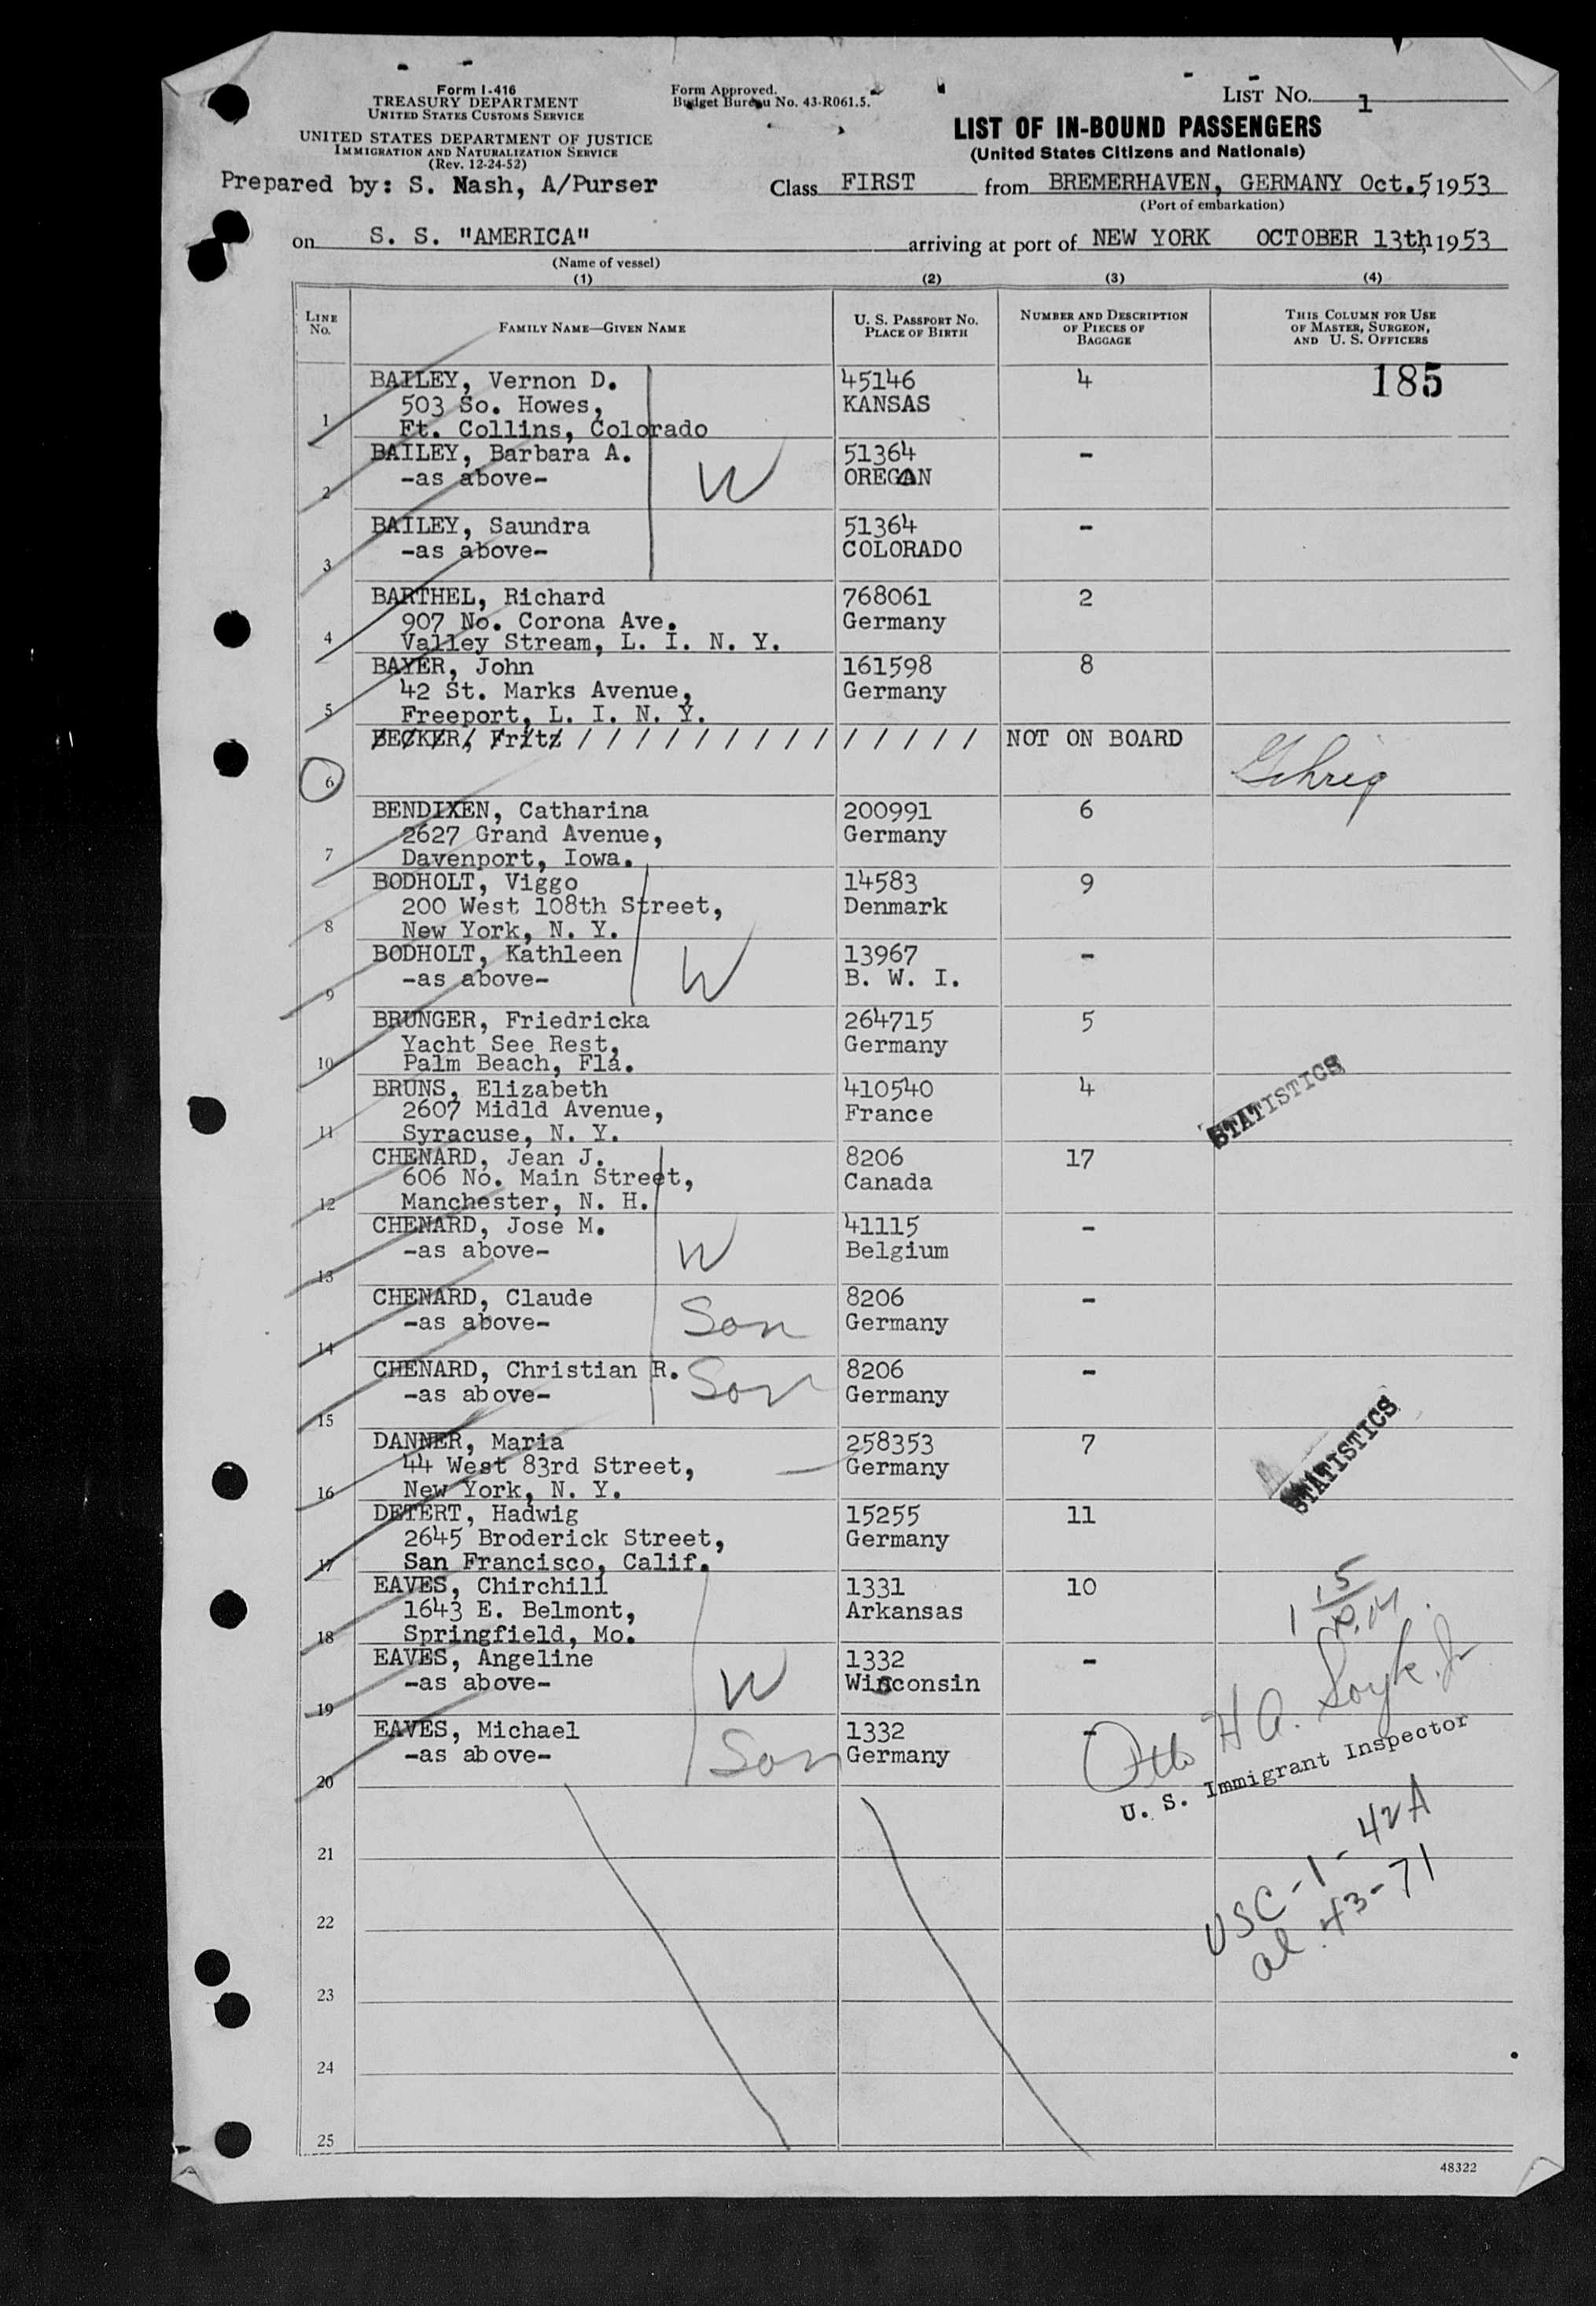 Form I-416
TREASURY DEPARTMENT
UNITED STATES CUSTOMS SERVICE
UNITED STATES DEPARTMENT OF JUSTICE
IMMIGRATION AND NATURALIZATION SERVICE
(Rev. 12-24-52)
Form Approved.
Budget Bureau No. 43-R061.5.
LIST NO. 1
LIST OF IN-BOUND PASSENGERS
(United States Citizens and Nationals)
Prepared by: S. Nash, A/Purser
Class FIRST from BREMERHAVEN, GERMANY Oct.5, 1953
(Port of embarkation)
on S. S. "AMERICA" arriving at port of NEW YORK OCTOBER 13th, 1953
(Name of vessel)
(1) (2) (3) (4)
LINE No.
FAMILY NAME—GIVEN NAME
U. S. PASSPORT NO.
PLACE OF BIRTH
NUMBER AND DESCRIPTION
OF PIECES OF
BAGGAGE
THIS COLUMN FOR USE
OF MASTER, SURGEON,
AND U. S. OFFICERS
185
BAILEY, Vernon D. 45146 4
503 So. Howes, KANSAS
1 Ft. Collins, Colorado
BAILEY, Barbara A. 51364 -
2 -as above- W OREGON
BAILEY, Saundra 51364 -
3 -as above- COLORADO
BARTHEL, Richard 768061 2
907 No. Corona Ave. Germany
4 Valley Stream, L. I. N. Y.
BAYER, John 161598 8
42 St. Marks Avenue, Germany
5 Freeport, L. I. N. Y.
BECKER, Fritz / / / / / / / / / / / / / / NOT ON BOARD
6 Gehrig
BENDIXEN, Catharina 200991 6
2627 Grand Avenue, Germany
7 Davenport, Iowa.
BODHOLT, Viggo 14583 9
200 West 108th Street, Denmark
8 New York, N. Y.
BODHOLT, Kathleen 13967 -
9 -as above- W B. W. I.
BRUNGER, Friedricka 264715 5
Yacht See Rest, Germany
10 Palm Beach, Fla.
BRUNS, Elizabeth 410540 4
2607 Midld Avenue, France
11 Syracuse, N. Y.
STATISTICS
CHENARD, Jean J. 8206 17
606 No. Main Street, Canada
12 Manchester, N. H.
CHENARD, Jose M. 41115 -
13 -as above- W Belgium
CHENARD, Claude 8206 -
14 -as above- Son Germany
CHENARD, Christian R. 8206 -
15 -as above- Son Germany
DANNER, Maria 258353 7
44 West 83rd Street, Germany
16 New York, N. Y.
STATISTICS
DETERT, Hadwig 15255 11
2645 Broderick Street, Germany
17 San Francisco, Calif.
EAVES, Chirchill 1331 10
1643 E. Belmont, Arkansas
18 Springfield, Mo.
1 15 P.M.
EAVES, Angeline 1332 -
19 -as above- W Wisconsin
EAVES, Michael 1332 -
20 -as above- Son Germany
Otto H A. Soyk Jr
U. S. Immigrant Inspector
21
USC-1-42A
al. 43-71
22
23
24
25
48322